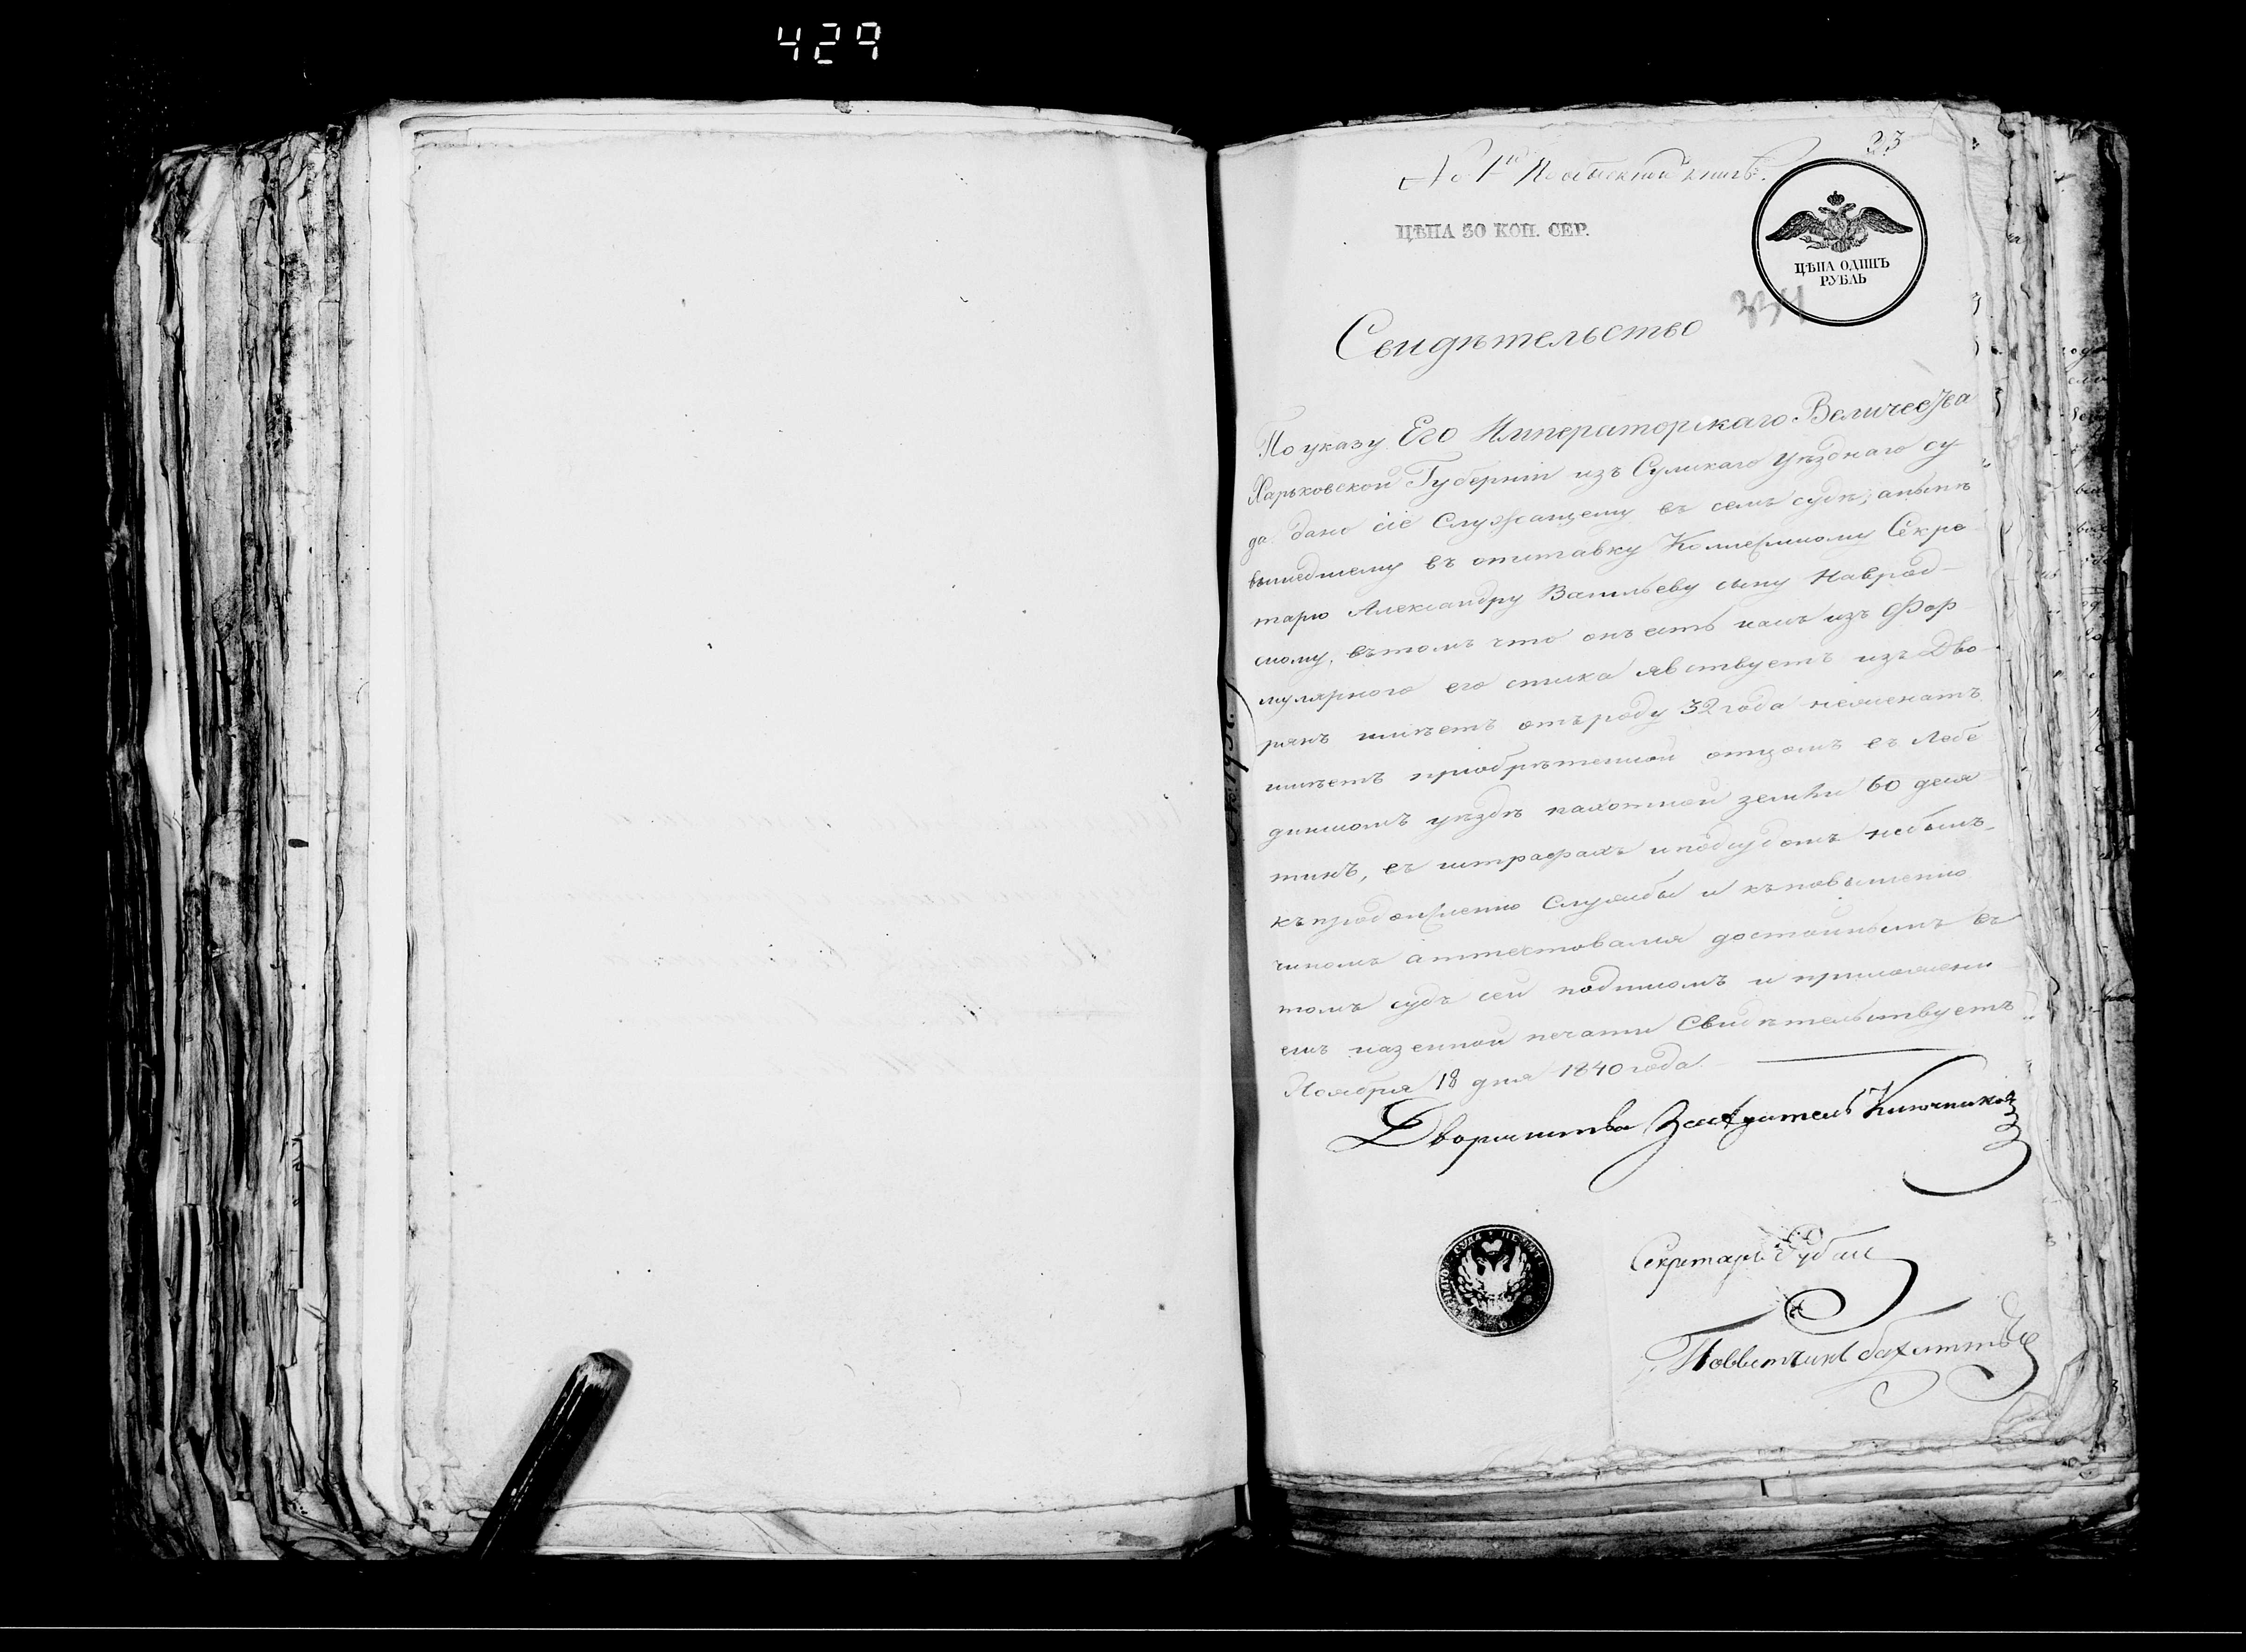 429
23
№ 1й По обыскной книгѣ.
ЦѢНА 30 КОП. СЕР.
ЦѢНА ОДИНЪ
РУБЛЬ
Свидѣтельство
По указу Его Императорскаго Величества
Харьковской Губерніи изъ Сумскаго Уѣзднаго су
да дано сіе Служащему въ семъ судѣ, а нынѣ
вышедшему въ отставку Коллежскому Секре
тарю Александру Васильеву сыну Наврод
скому, въ томъ что онъ есть какъ изъ Фор
мулярного его списка явствуетъ изъ Дво
рянъ имѣетъ отъ роду 32 года неженатъ
имѣетъ пріобрѣтенной отцомъ въ Лебе
динскомъ уѣздѣ пахотной земли 60 деся
тинъ, въ штрафахъ и подсудомъ небылъ
къ продолженію Службы и къ повышенію
чиномъ аттестовался достойнымъ въ
томъ судъ сей подписомъ и приложени
емъ казенной печати Свидѣтельствуетъ
Ноября 18 дня 1840 года.
Дворянства Засѣдатель Ключников
Секретарь Рубан
Повытчикъ